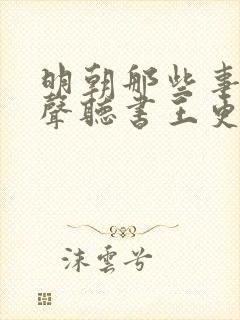 明朝那些事
聲聽書王更
沫雲兮